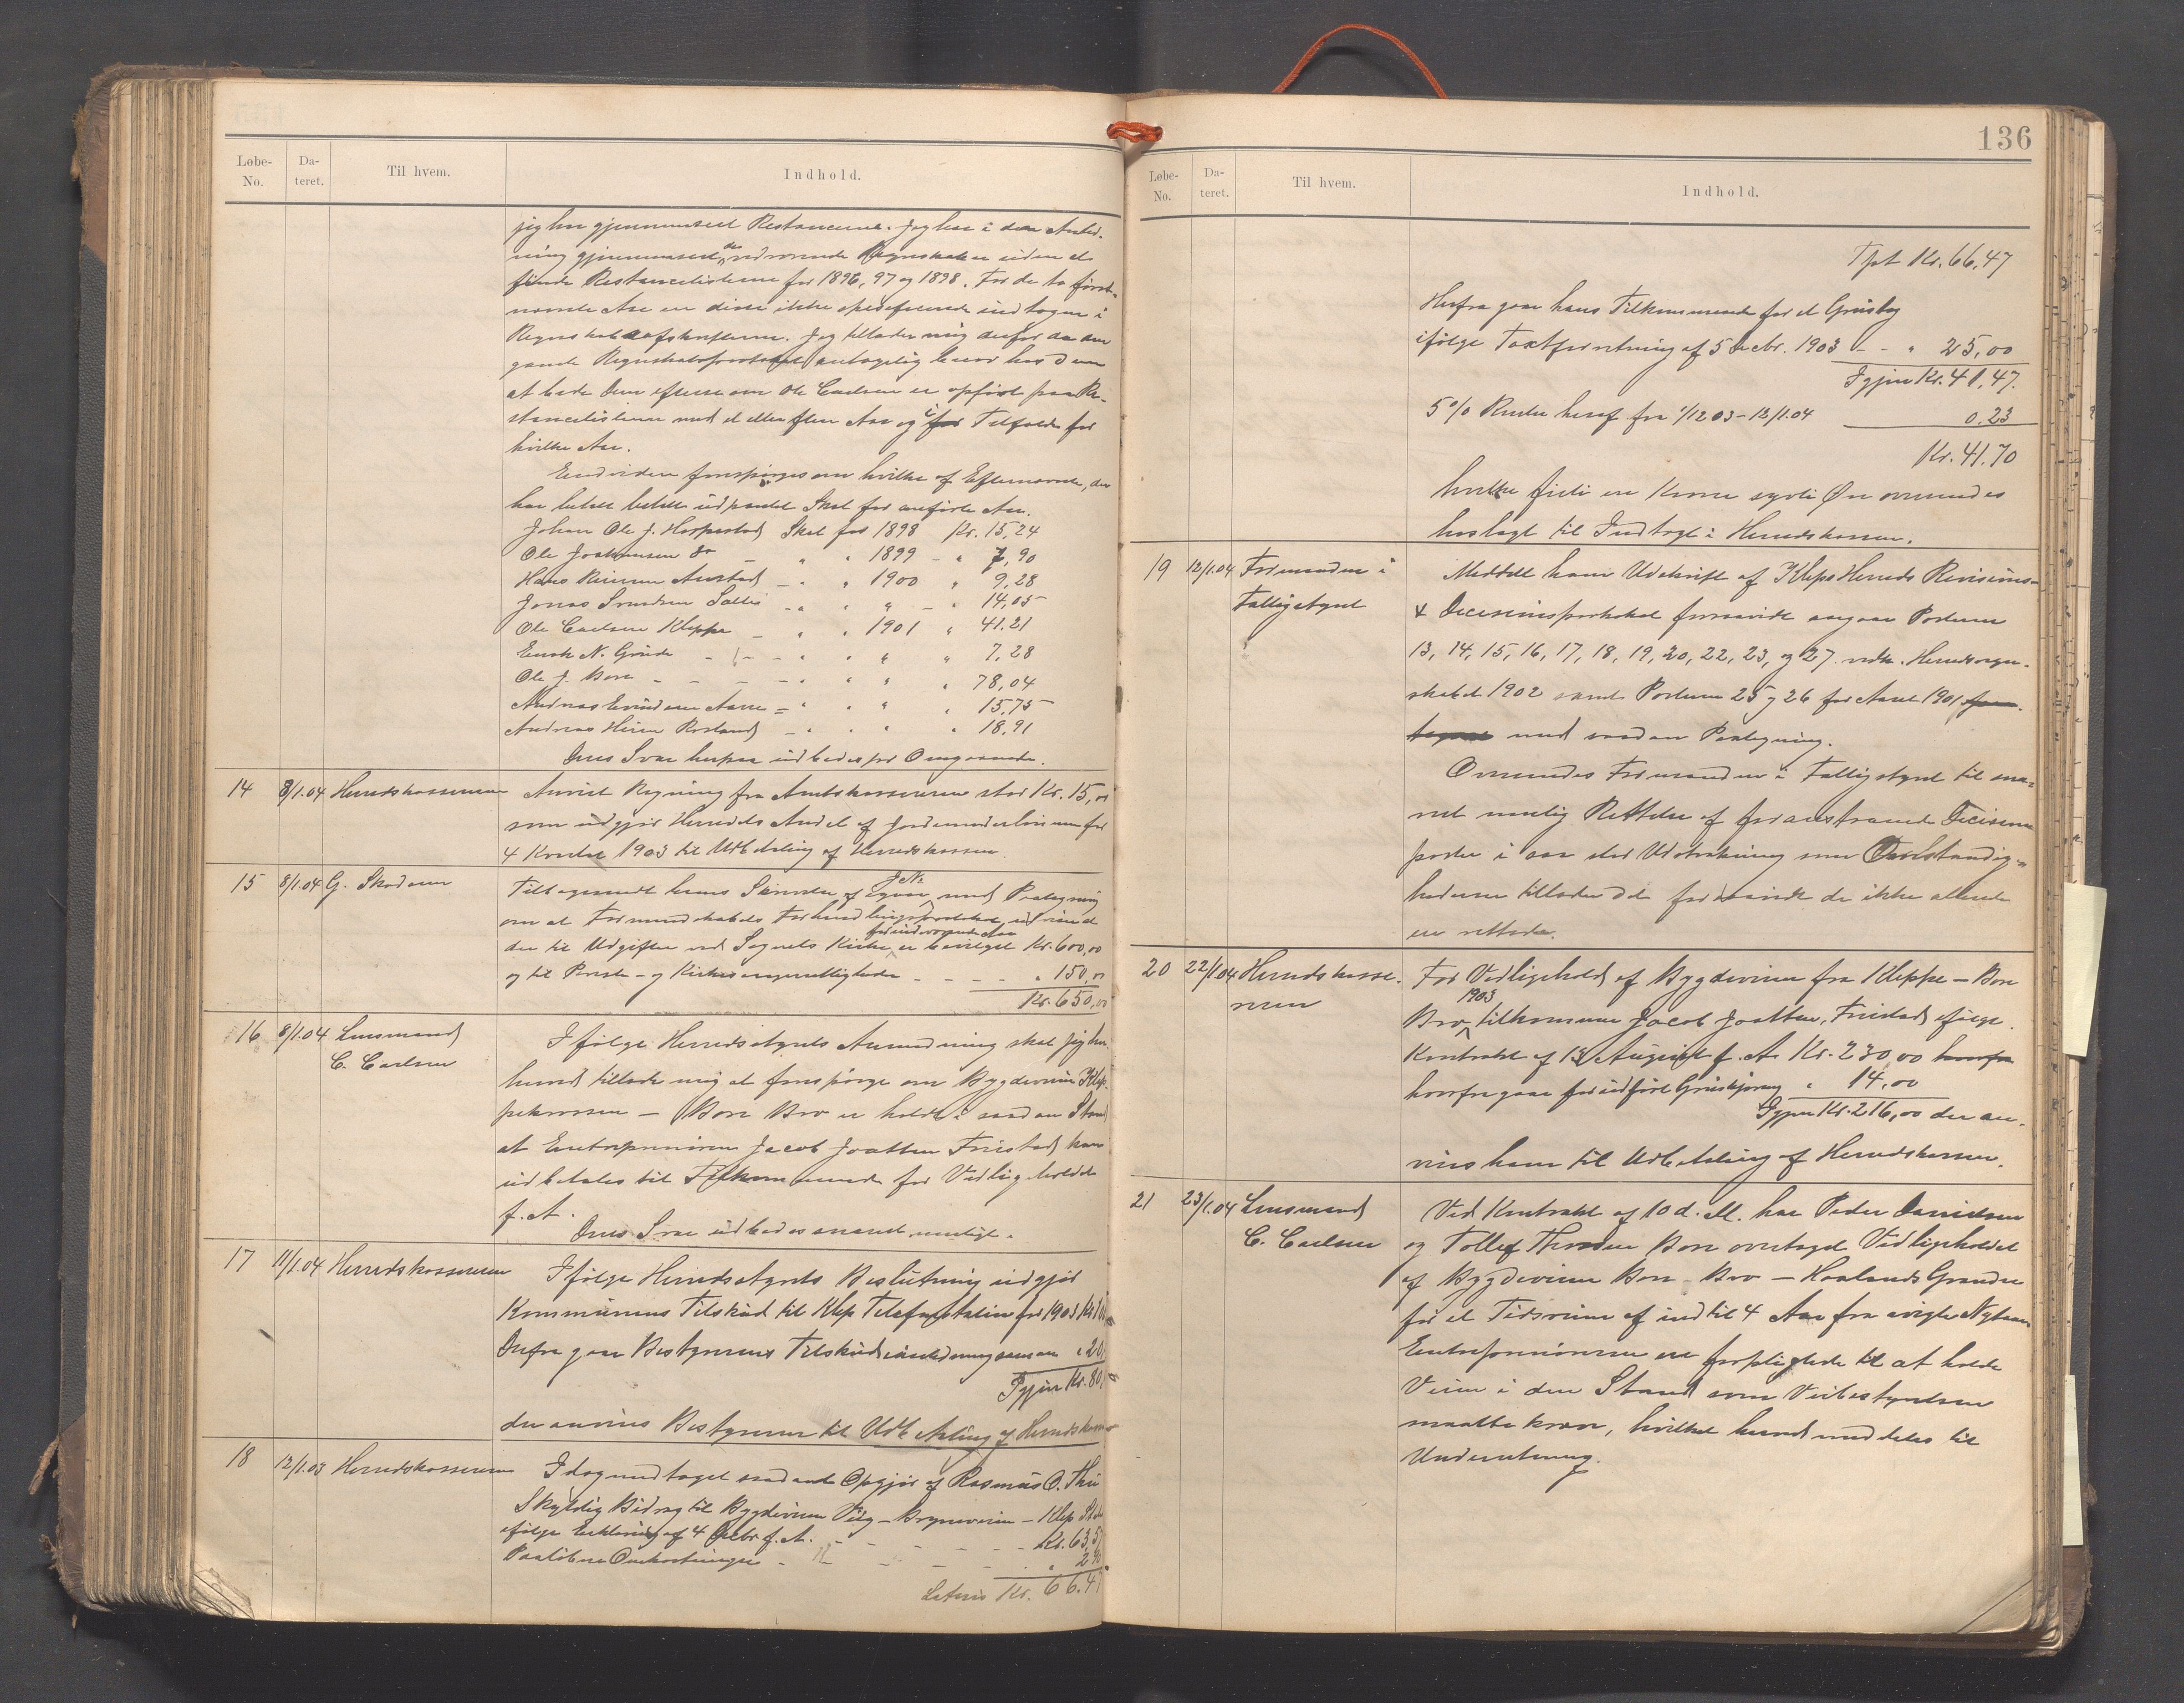 Løbe-No. Da-teret. Til hvem. Indhold.
jeg har gjennemseet Restancerne. Jeg har i den Anled-
ning gjennemseet de vedrørende Regnskaber uden at
finde Restancelisterne for 1896, 97 og 1898. For de to først-
nævnte Aar er disse ikke indtagne i
Regnskabsafskrifterne. Jeg tillader mig derfor da
gamle Regnskabsprotokol antagelig beror hos Dem
at bede Dem efterse om Ole Carlsen er opført paa Re-
stancelisterne med et eller flere Aar og i Tilfælde for
hvilke Aar.
Endvidere forespørges om hvilke af Efternævnte, der
har betalt udpantet Skat for anførte Aar.
Johan Ole J. Horpestad Skat for 1898 Kr. 15,24
Ole Joakimsen do - " " 1899 - " 7,90
Hans Reinsen Anstad - " " 1900 " 9,28
Jonas Svendsen Salte - " " " - " 14,05
Ole Carlsen Kleppe - " " 1901 " 41.21
Enok N. Grude - - - " " " " 7,28
Ole J. Bore - - - - " " " " 78,04
Andreas Evindsen Aarre - " " " " 15.75
Andreas Rosland - " " " " 18,91
Deres Svar herpaa udbedes pr Omgaaende.
14 8/1.04 Herredskassereren Anvist Regning fra Amtskassereren stor Kr. 15,00
som udgjør Herredets Andel af Jordmoderlønnen for
4 Kvartal 1903 til Udbetaling af Herredskassen.
15 8/1.04 G. Skadsem Tilbagesendt hans Skrivelse af J.No. med Paategning
om at Formandskabets Forhandlingsprotokol udviser at
der til Udgifter ved Sognets Kirke for indeværende Aar er bevilget Kr. 600,00
og til Preste- og Kirkesangerrettigheder - - - - " 150,00
Kr. 650,00
16 8/1.04 Lensmand
C. Carlsen
Ifølge Herredsstyrets Anmodning skal jeg her-
ved tillade mig at forespørge om Bygdeveien Klep-
pekrossen - Bore Bro er holdt i saadan Stand
at Entreprenøren Jacob Joatten Friestad kan
udbetales sit Tilkommende for Vedligeholdet
f. A.
Deres Svar udbedes snarest muligt.
17 11/1.04 Herredskassereren Ifølge Herredsstyrets Beslutning udgjør
Kommunens Tilskud til Klep Telefonstation for 1903 Kr. 100
Derfra gaar Bestyrerens Tilskud " 20
Igjen Kr. 80,
der anvises Bestyreren til Udbetaling af Herredskassen
18 12/1.03 Herredskassereren I dag modtaget saadant Opgjør af Rasmus O. Thu
Skyldig Bidrag til Bygdeveien Vig - Bryneveien - Klep St.
ifølge Erklæring af 4 Decbr f. A. - - - - - Kr. 63,5
Paaløbne Omkostninger - - - - " 2
Latus Kr. 66.47
136
Løbe-No. Da-teret. Til hvem. Indhold.
Tpt Kr. 66,47
Herfra gaar hans Tilkommende for et Grustag
ifølge Taxtforretning af 5 Decbr. 1903 - - " 25,00
Igjen Kr. 41,47.
5% Renter heraf fra 1/12 03 - 12/1.04 0.23
Kr. 41.70
hvilke firti en Kroner sytti Øre oversendes
hoslagt til Indtægt i Herredskassen.
19 12/1.04 Formanden i
Fattigstyret
Meddelt ham Udskrift af Klep Herreds Revisions-
& Decisionsprotokol forsaavidt angaar Posterne
13, 14, 15, 16, 17, 18, 19, 20, 22, 23, og 27 vedk. Herredsregn-
skabet 1902 samt Posterne 25 og 26 for Aaret 1901
med saadan Paategning.
Oversendes Formanden i Fattigstyret til sna-
rest mulig Rettelse af foranstaaende Decisions
poster i saa stor Udstrækning som Omstændig-
hederne tillader det forsaavidt de ikke allerede
er rettede.
20 22/1.04 Herredskasse-
reren
For Vedligehold af Bygdeveien fra Kleppe - Bore
Bro 1903 tilkommer Jacob Joatten, Friestad ifølge
Kontrakt af 13 August f. A. Kr. 230,00
hvorfra gaar for udført Gruskjøring " 14,00
Igjen Kr. 216,00 der an-
vises ham til Udbetaling af Herredskassen.
21 23/1.04 Lensmand
C. Carlsen
Ved Kontrakt af 10 d. M. har Peder Danielsen
og Tollef Thorsen Bore overtaget Vedligeholdet
af Bygdeveien Bore Bro - Haalands Grændse
for et Tidsrum af indtil 4 Aar fra Nytaar
Entreprenørerne er forpligtede til at holde
Veien i den Stand som Veibestyrelsen
maatte kræve, hvilket herved meddeles til
Underretning.